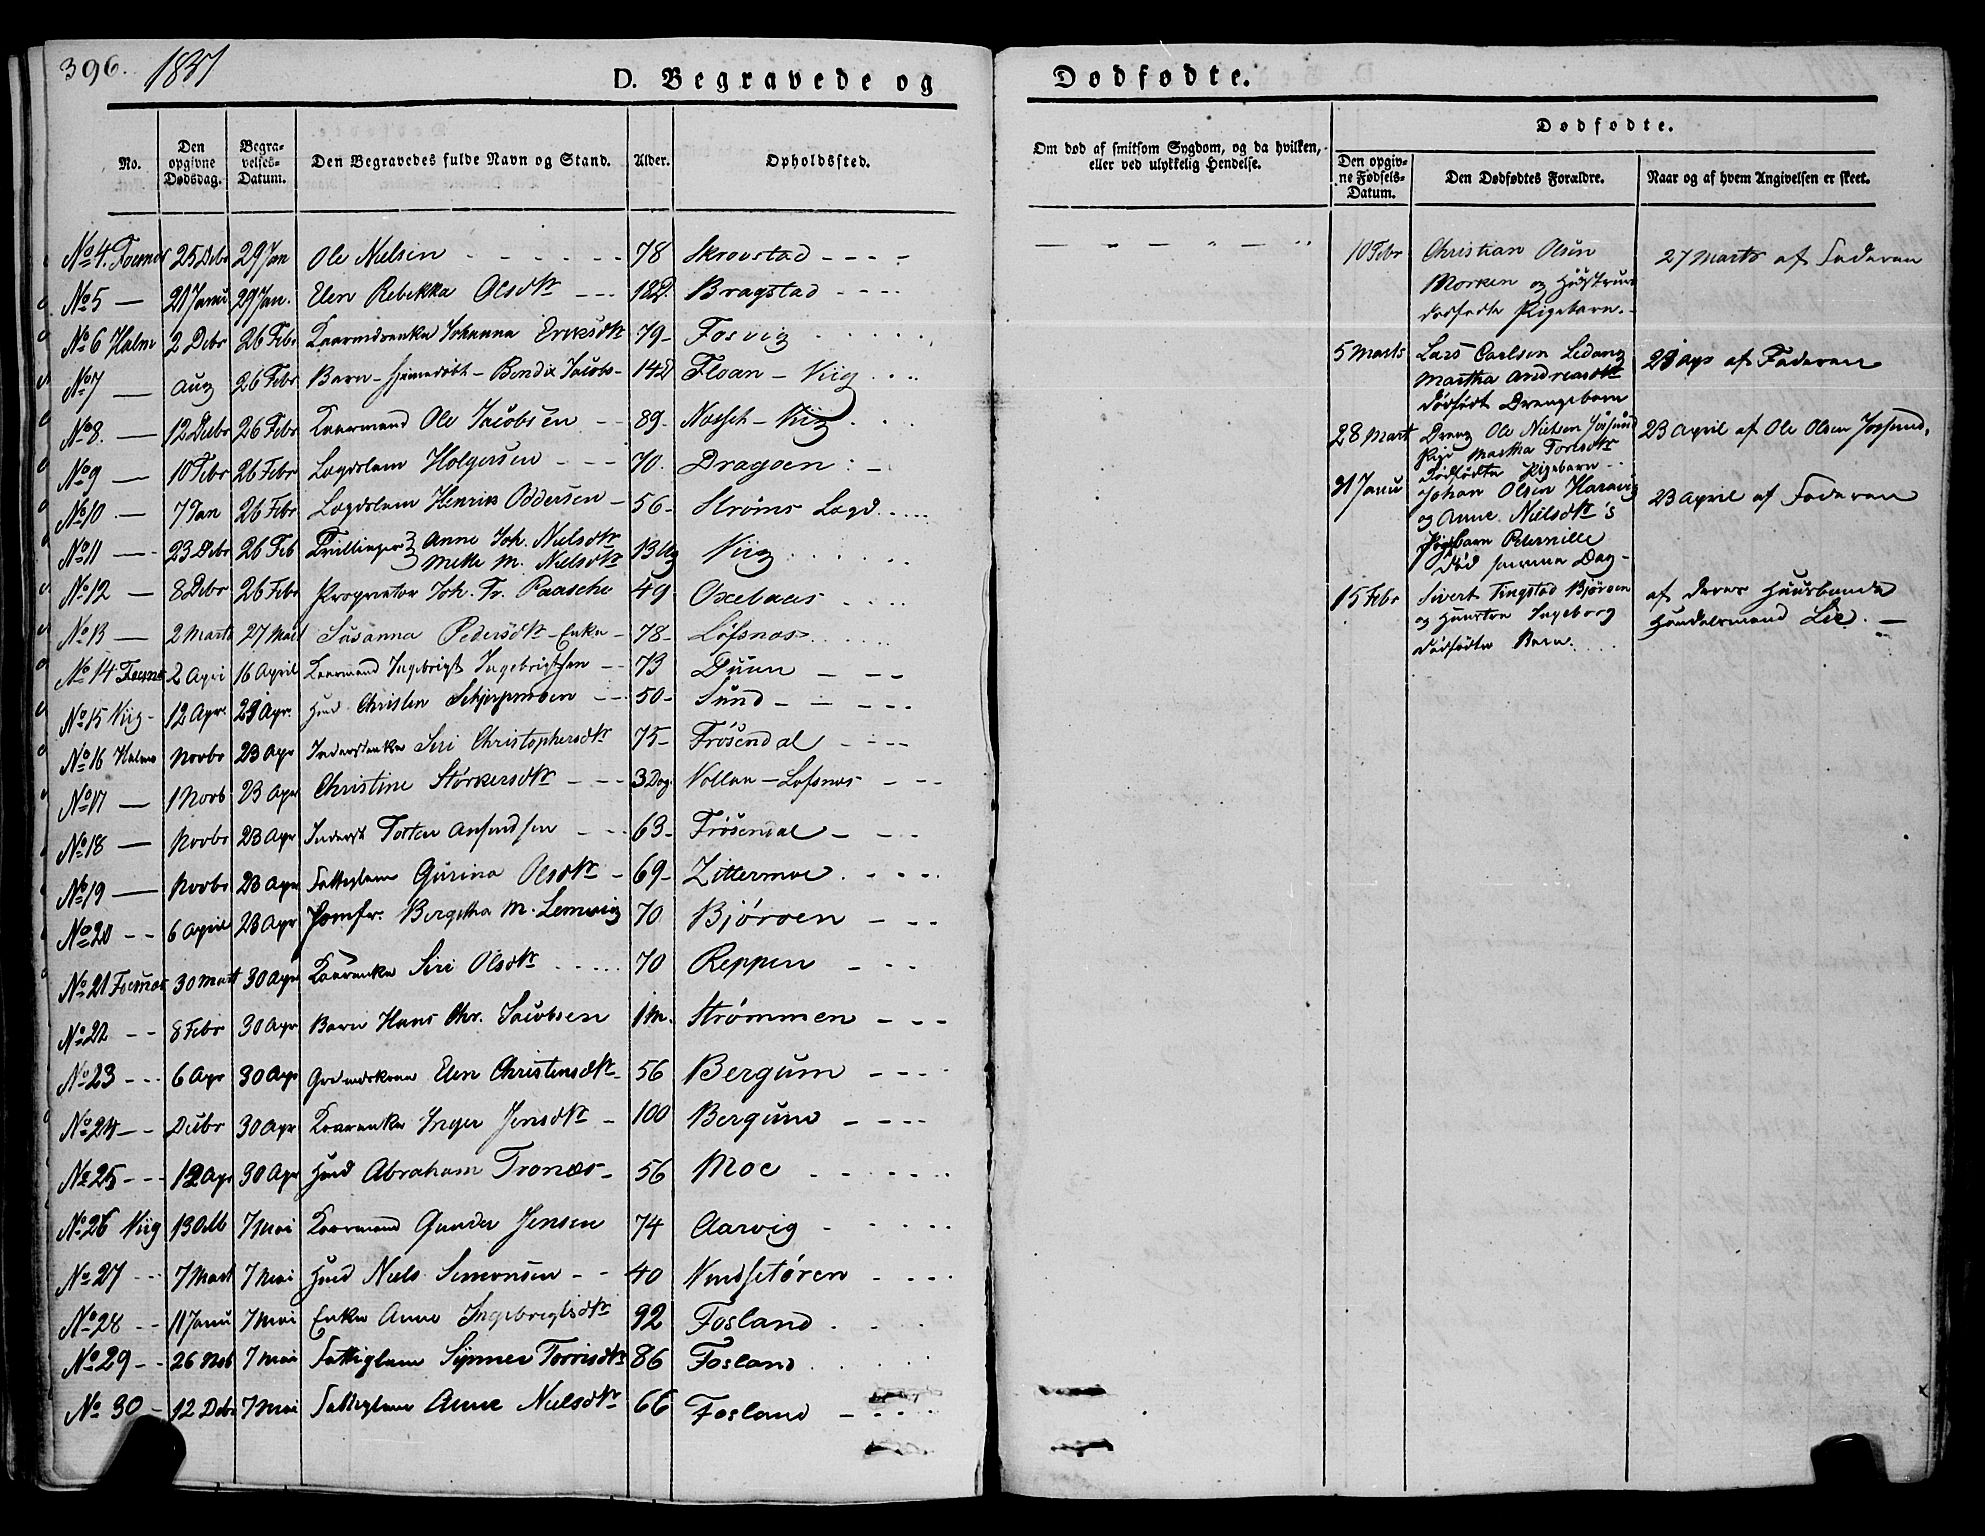 396. 1837
D. Begravede og
Dødfødte.
No.
Den opgivne Dødsdag.
Begravelses-Datum.
Den Begravedes fulde Navn og Stand.
Alder.
Opholdssted.
Om død af smitsom Sygdom, og da hvilken, eller ved ulykkelig Hendelse.
Dødfødte.
Den opgivne Fødsels-Datum.
Den Dødfødtes Forældre.
Naar og af hvem Angivelsen er skeet.
No 4. Foesnæs 25 Debr 29 Jan Ole Nielsen 78 Skrovstad
No 5 — 21 Janu 29 Jan. Elen Rebekka Olsdtr 12D. Bragstad
No 6 Holm 2 Debr 26 Febr Kaarmdenke Johanna Eriksdtr 79 Fosvig
No 7 — Aug 26 Febr Barn – Hjemmedøbt – Bendix Jacobs – 14D Floan – Viig
No 8. — 12 Decbr 26 Febr Kaarmand Ole Jacobsen 89. – Viig
No 9 — 10 Febr 26 Febr Lægdslem Holgersen 70. Dragøen
No 10 — 7 Jan 26 Febr Lægdslem Henrik Oddersen 56 Strøms Lægd
No 11 — 23 Debr 26 Feb Tvillinger Anne Joh. Nielsdtr
Mette M. Nielsdtr 13 Ug Viig
No 12 — 8 Debr 26 Febr Proprietær Joh. Fr. Paasche 49 Oxebaas
No 13 — 2 Marts 27 Mart Susanna Pedersdtr – Enke 78 Løfsnæs
No 14 Foesnæs 2 Apri 16 April Kaarmand Ingebrigt Ingebrigtsen 73 Duun
No 15 Viig – 12 Apr. 23 Apr. Huusmd Christen 50 Sund
No 16 Holm Novbr 23 Apr Inderstenke Siri Christophersdtr 75 Frøsendal
No 17 — 1 Novb 23 Apr Christine Størkersdtr 3 Dag. Vollan – Lofsnæs
No 18 — Novbr 23 Apr Inderst Torten 63 Frøsendal
No 19 — Novbr 23 Apr Fattiglem Gurina Olsdtr 69 Zittermoe
No 20 – – 6 April 23 Apr Jomfr. Bergitha M. Lemvig 70 Bjørøen
No 21 Foesnæs 30 Mart 30 Apr Kaarenke Siri Olsdtr 70 Reppen
No 22 – – 8 Febr 30 Apr Barn Hans Chr. Jacobsen 1 M. Strømmen
No 23 – – 6 Apr 30 Apr Elen Christensdtr 56 Bergum
No 24 – – Decbr 30 Apr Kaarenke Inger Jensdtr 100 Bergum
No 25 – – 12 Apr 30 Apr Huusmd Abraham Tronæs 56 Moe
No 26 Viig 13 Octb 7 Mai Kaarmand Gunder Jensen 74 Aarvig
No 27 – – 7 Mart 7 Mai Huusmd Niels Simonsen 40 Vendsetøren
No 28 – – 11 Janu 7 Mai Enke Anne Ingebrigtsdtr 92 Fosland
No 29 – – 26 Nob 7 Mai Fattiglem Synnev Torrisdtr 86 Fosland
No 30 – 12 Debr 7 Mai Fattiglem Anne Nielsdtr 66 Fosland
10 Febr Christian Olsen
Morken og Hustrues
dødfødte Pigebarn.
27 Marts af Faderen
5 Marts Lars Carlsen Ledang
Martha Andreasdtr
dødfødt Drengebarn
23 Apr af Faderen
28 Mart Dreng Ole Nielsen Jøssund
Pige Martha Torrisdtr
dødfødte Pigebarn
23 April af Ole Olsen Jøssund.
31 Janu Johan Olsen Haravig
og Anne Nielsdtr's
Pigebarn Peternille
død samme Dag –
23 April af Faderen
15 Febr Sivert Tingstad Bjørøen
og Hustru Ingeborg
dødfødte Barn.
af deres Huusbonde
Handelsmand Lie.